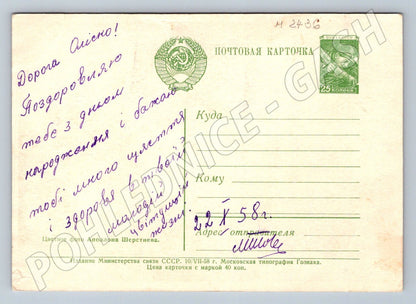 м 2436
ПОЧТОВАЯ КАРТОЧКА
25
Дорога Олісно!
Поздоровляю
тебе з дньом
народження і бажаю
тобі много щястя
і здоровя в твоїй
молодій і
цвітущій
жизні.
Куда
Кому
22 X 58 г.
Адрес отправителя
Цветное фото Анатолия Шерстнева.
Издание Министерства связи СССР. 10/VII-58 г. Московская типография Гознака.
Цена карточки с маркой 40 коп.
POHLEDNICE - GESH